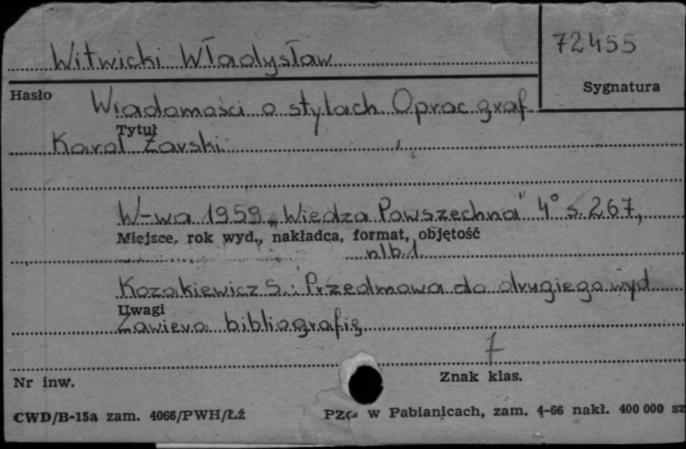 72455
Witwicki Władysław
Sygnatura
Hasło
Wiadomości o stylach Oprac graf
Tytuł
Karol Żarski
W-wa 1959 „Wiedza Powszechna" 4° s. 267,
Miejsce, rok wyd., nakładca, format, objętość
nlb. 1.
Kozakiewicz S.: Przedmowa do drugiego wyd
Uwagi
Zawiera bibliografię
7
Nr inw.
Znak klas.
CWD/B-15a zam. 4066/PWH/Łź
PZG w Pabianicach, zam. 4-66 nakł. 400 000 sz